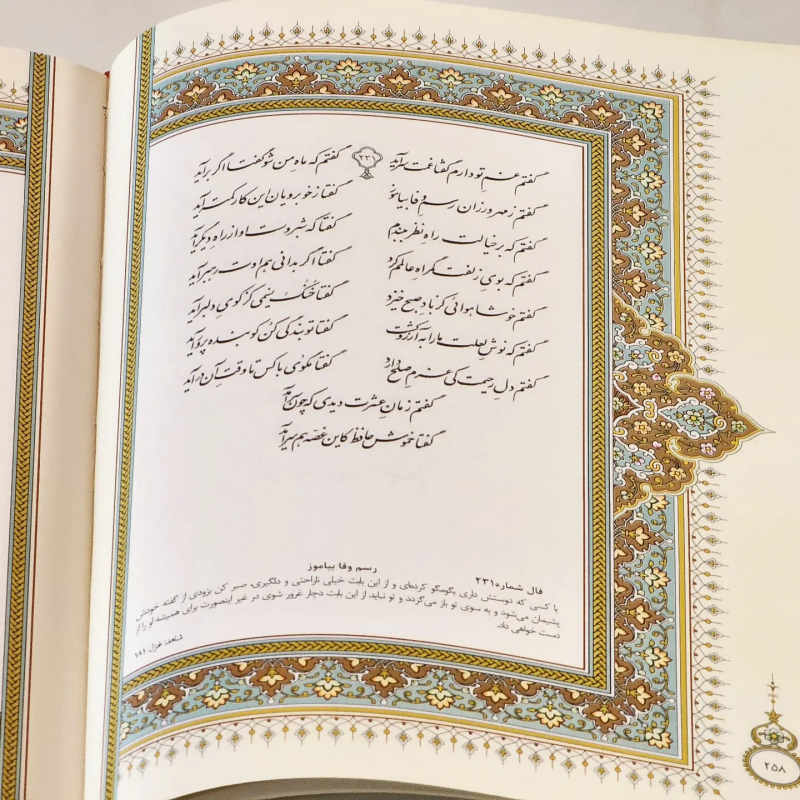 ۲۳۱
گفتم غم تو دارم گفتا غمت سرآید گفتم که ماه من شو گفتا اگر برآید
گفتم ز مهرورزان رسم وفا بیاموز گفتا ز خوبرویان این کار کمتر آید
گفتم که بر خیالت راه نظر ببندم گفتا که شبروست او از راه دیگر آید
گفتم که بوی زلفت گمراه عالمم کرد گفتا اگر بدانی هم اوت رهبر آید
گفتم خوشا هوائی کز باد صبح خیزد گفتا خنک نسیمی کز کوی دلبر آید
گفتم که نوش لعلت ما را به آرزو کشت گفتا تو بندگی کن کو بنده پرور آید
گفتم دل رحیمت کی عزم صلح دارد گفتا مگوی با کس تا وقت آن درآید
گفتم زمان عشرت دیدی که چون سرآمد
گفتا خموش حافظ کاین غصه هم سرآید
رسم وفا بیاموز
فال شماره ۲۳۱
با کسی که دوستش داری بگومگو کرده‌ای و از این بابت خیلی ناراحتی و دلگیری، صبر کن بزودی از گفته خودش
پشیمان می‌شود و به سوی تو باز می‌گردد و تو نباید از این بابت دچار غرور شوی در غیر اینصورت برای همیشه او را از
دست خواهی داد.
شاهد: غزل ۱۸۱
۲۵۸